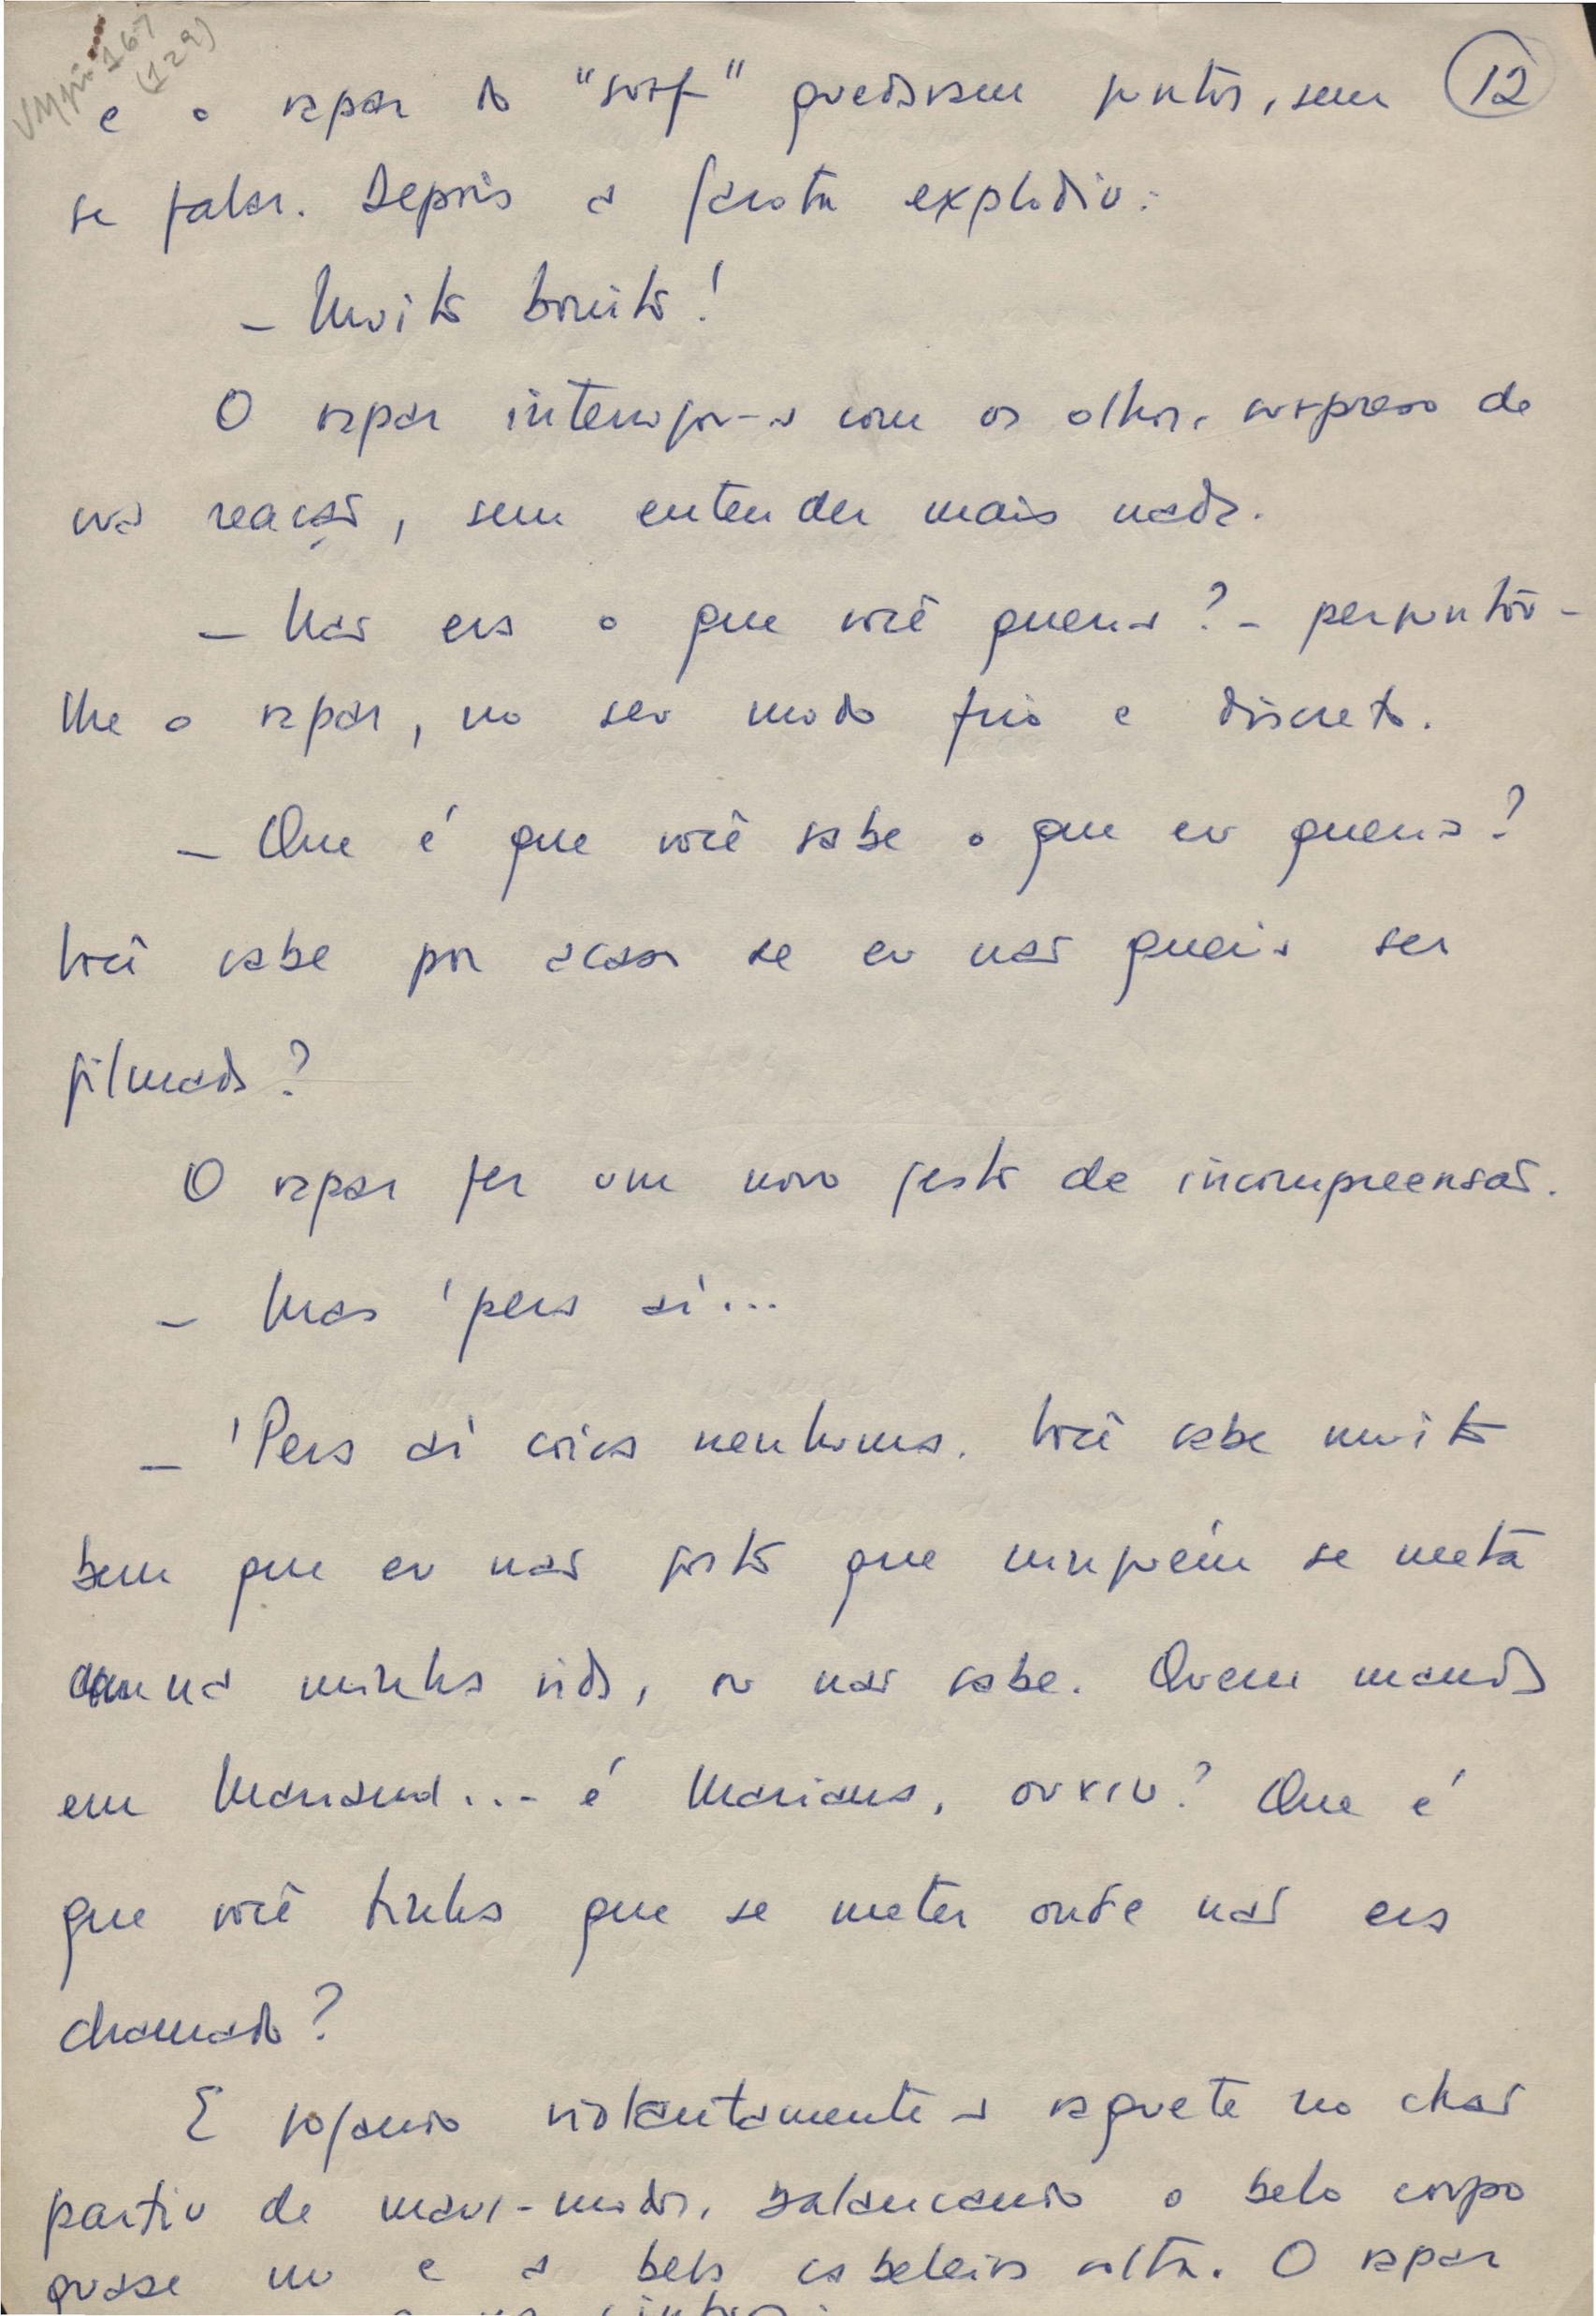 VMpi 167
(129)
12
e o rapaz do "surf" quedavam juntos, sem
se falar. Depois a garota explodiu:
– Muito bonito!
O rapaz interrogou-a com os olhos, surpreso de
sua reação, sem entender mais nada.
– Não era o que você queria? – perguntou-
lhe o rapaz, no seu modo frio e discreto.
– Que é que você sabe o que eu queria?
Você sabe por acaso se eu não queria ser
filmada?
O rapaz fez um novo gesto de incompreensão.
– Mas 'pera aí...
– 'Pera aí coisa nenhuma. Você sabe muito
bem que eu não gosto que ninguém se meta
na minha vida, ou não sabe. Quem manda
em Mariana... é Mariana, ouviu? Que é
que você tinha que se meter onde não era
chamado?
E jogando violentamente a raquete no chão
partiu de maus-modos, balançando o belo corpo
quase nu e a bela cabeleira solta. O rapaz